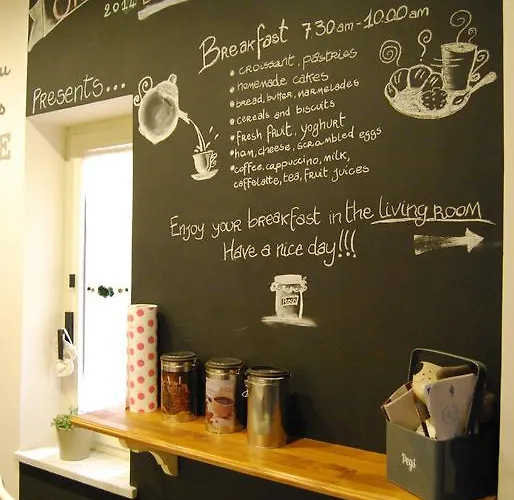 2014
Presents...
Breakfast 7.30am-10.00am
• croissant, pastries
• homemade cakes
• bread, butter, marmelades
• cereals and biscuits
• fresh fruit, yoghurt
• ham, cheese, scrambled eggs
• coffee, cappuccino, milk,
caffelatte, tea, fruit juices
Enjoy your breakfast in the living room
Have a nice day!!!